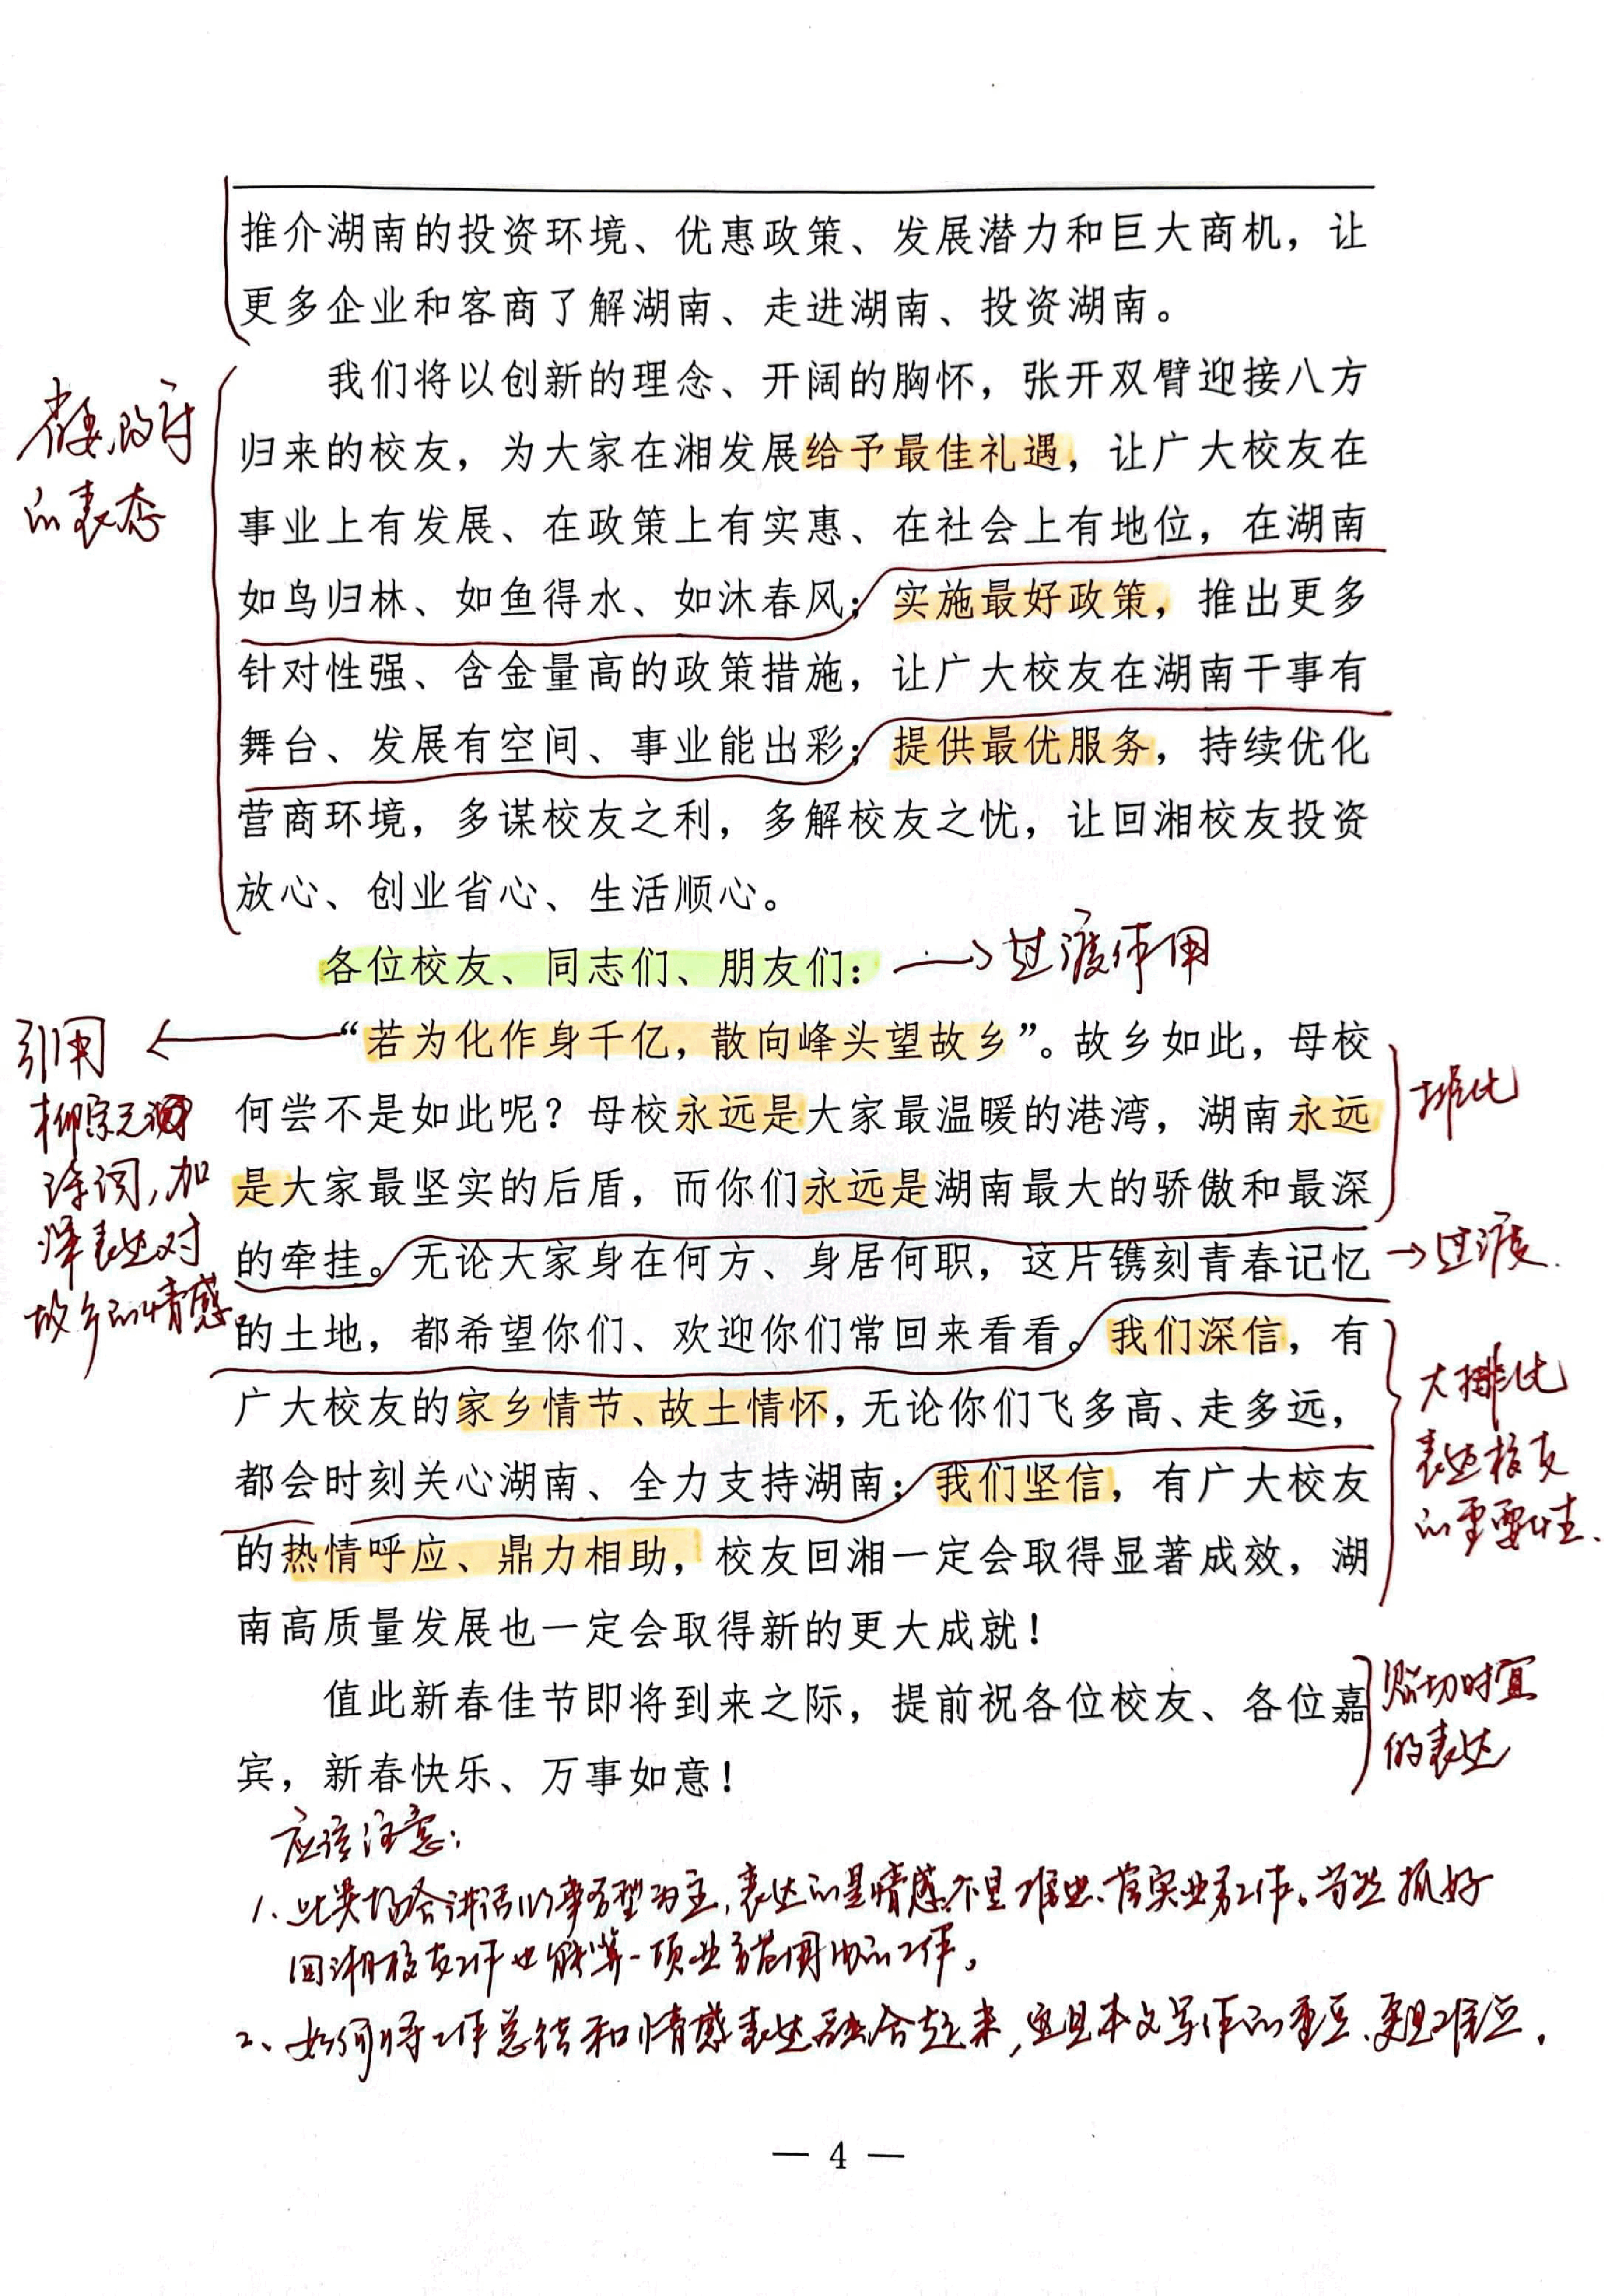 推介湖南的投资环境、优惠政策、发展潜力和巨大商机，让
更多企业和客商了解湖南、走进湖南、投资湖南。
我们将以创新的理念、开阔的胸怀，张开双臂迎接八方
归来的校友，为大家在湘发展给予最佳礼遇，让广大校友在
事业上有发展、在政策上有实惠、在社会上有地位，在湖南
如鸟归林、如鱼得水、如沐春风；实施最好政策，推出更多
针对性强、含金量高的政策措施，让广大校友在湖南干事有
舞台、发展有空间、事业能出彩；提供最优服务，持续优化
营商环境，多谋校友之利，多解校友之忧，让回湘校友投资
放心、创业省心、生活顺心。
省委、政府
的表态
各位校友、同志们、朋友们：
过渡使用
“若为化作身千亿，散向峰头望故乡”。故乡如此，母校
何尝不是如此呢？母校永远是大家最温暖的港湾，湖南永远
是大家最坚实的后盾，而你们永远是湖南最大的骄傲和最深
的牵挂。无论大家身在何方、身居何职，这片镌刻青春记忆
的土地，都希望你们、欢迎你们常回来看看。我们深信，有
广大校友的家乡情节、故土情怀，无论你们飞多高、走多远，
都会时刻关心湖南、全力支持湖南；我们坚信，有广大校友
的热情呼应、鼎力相助，校友回湘一定会取得显著成效，湖
南高质量发展也一定会取得新的更大成就！
引用
柳宗元
诗词，加
深表达对
故乡的情感
排比
过渡.
大排比
表达校友
的重要性.
值此新春佳节即将到来之际，提前祝各位校友、各位嘉
宾，新春快乐、万事如意！
贴切时宜
的表达
应该注意：
1、此类场合讲话以事务型为主，表达的是情感，不是推进、落实业务工作。当然抓好
回湘校友工作也能算一项业务范围内的工作。
2、如何将工作总结和情感表达融合起来，这是本文写作的重点、更是难点.
— 4 —